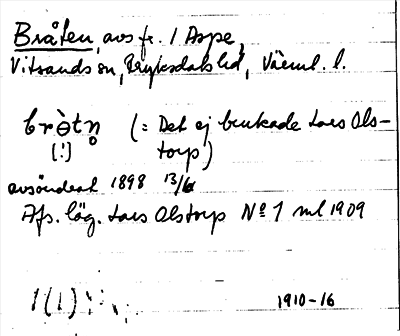 Bråten, avs fr. 1 Aspe,
Vitsands sn, Älvdals hd, Värml. l.
brɵ̀tn̥ (: Det ej brukade Lars Ols-
[!] torp)
avsöndrat 1898 13/6
Afs. läg. Lars Olstorp No 1 ml 1909
1(1)
1910-16